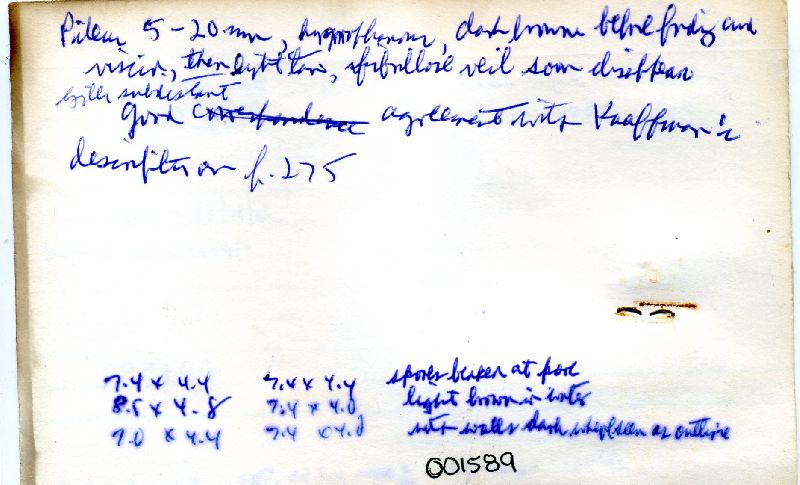 Pileus 5-20 mm, hygrophanous, dark brown before fading and
viscid, then light tan, fibrillose veil soon disappear
Gills subdistant
Good correspondence agreement with Kauffman's
description p. 275
7.4 x 4.4 7.4 x 4.4 spores broken at pore
8.5 x 4.8 7.4 x 4.0 light brown in water
7.0 x 4.4 7.4 x 4.0 with walls dark when seen as outline
001589